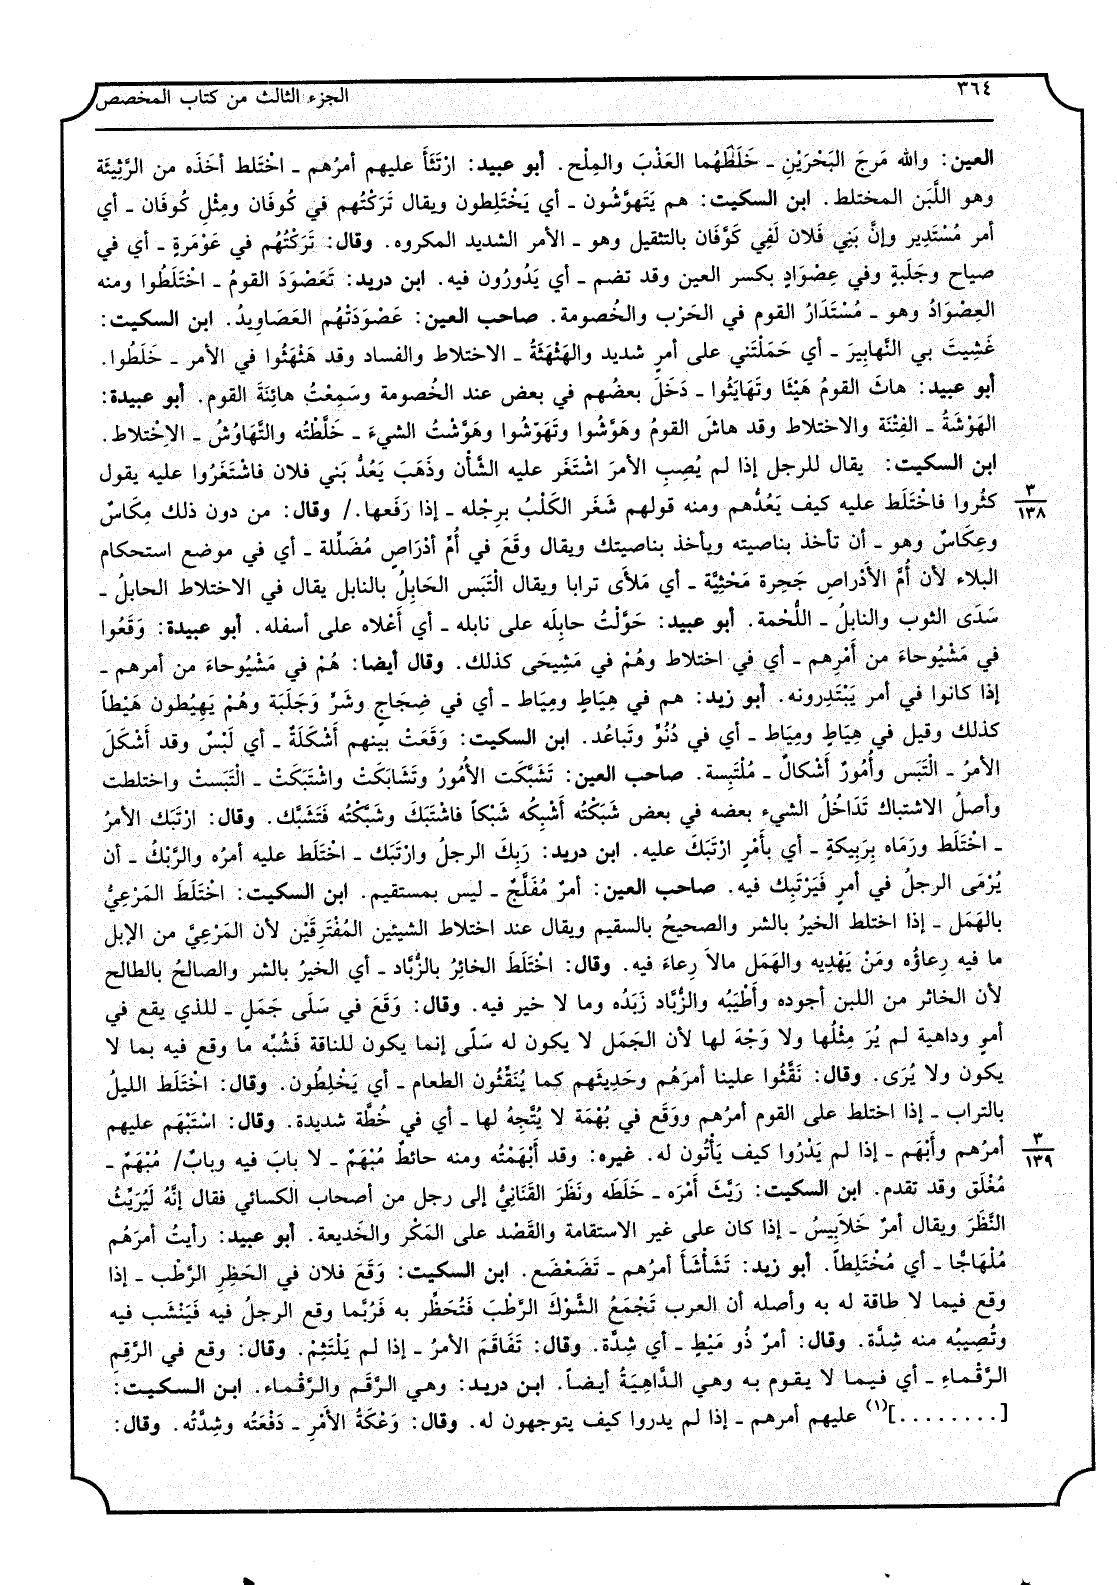 ٣٦٤
الجزء الثالث من كتاب المخصص
العين: والله مَرجَ البَحْرَيْنِ ـ خَلَطَهُما العَذْبَ والمِلْح. أبو عبيد: ارْتَثَأَ عليهم أمرُهم ـ اخْتَلط أخَذَه من الرَّثِيئَة
وهو اللَّبَن المختلط. ابن السكيت: هم يَتَهوَّشُون ـ أي يَخْتَلِطون ويقال تَرَكْتُهم في كُوفَان ومِثْلِ كُوفَان ـ أي
أمر مُسْتَدِير وإنَّ بَنِي فَلان لَفِي كَوَّفَان بالتثقيل وهو ـ الأمر الشديد المكروه. وقال: تَرَكْتُهُم في عَوْمَرةٍ ـ أي في
صياح وجَلَبةٍ وفي عِصْوَادٍ بكسر العين وقد تضم ـ أي يَدُورُون فيه. ابن دريد: تَعَصْوَدَ القومُ ـ اخْتَلَطُوا ومنه
العِصْوَادُ وهو ـ مُسْتَدَارُ القوم في الحَرْب والخُصومة. صاحب العين: عَصْوَدَتْهُم العَصَاوِيدُ. ابن السكيت:
غَشِيتَ بي النَّهابِيرَ ـ أي حَمَلْتَني على أمرٍ شديد والهَثْهَثَةُ ـ الاختلاط والفساد وقد هَثْهَثُوا في الأمر ـ خَلَطُوا.
أبو عبيد: هاثَ القومُ هَيْثَا وتَهايَثُوا ـ دَخَلَ بعضُهم في بعض عند الخُصومة وسَمِعْتُ هائِنَةَ القوم. أبو عبيدة:
الهَوْشَةُ ـ الفِتْنَة والاختلاط وقد هاشَ القومُ وهَوَّشُوا وتَهَوّشُوا وهَوَّشْتُ الشيءَ ـ خَلَّطْتُه والتَّهَاوُشُ ـ الاِخْتلاط.
ابن السكيت: يقال للرجل إذا لم يُصِبِ الأمرَ اشْتَغَر عليه الشَّأْن وذَهَبَ يَعُدُّ بَني فلان فاشْتَغَرُوا عليه يقول
كثُروا فاخْتَلَط عليه كيف يَعُدُّهم ومنه قولهم شَغَر الكَلْبُ برِجْله ـ إذا رَفَعها./ وقال: من دون ذلك مِكَاسٌ
٣
١٣٨
وعِكَاسٌ وهو ـ أن تأخذ بناصيته ويأخذ بناصيتك ويقال وقَعَ في أُمِّ أدْرَاصٍ مُضَلِّلة ـ أي في موضع استحكام
البلاء لأن أُمَّ الأَدْراصِ جَحِرة مَحْثِيَّة ـ أي مَلأى ترابا ويقال الْتَبَس الحَابِلُ بالنابل يقال في الاختلاط الحابلُ ـ
سَدَى الثوب والنابلُ ـ اللُّحْمة. أبو عبيد: حَوَّلْتُ حابِلَه على نابله ـ أي أَعْلاه على أسفله. أبو عبيدة: وَقَعُوا
في مَشْيُوحاءَ من أَمْرِهم ـ أي في اختلاط وهُمْ في مَشِيحَى كذلك. وقال أيضا: هُمْ في مَشْيُوحاءَ من أمرهم ـ
إذا كانوا في أمر يَبْتَدِرونه. أبو زيد: هم في هِيَاطٍ ومِيَاط ـ أي في ضِجَاجٍ وشَرٍّ وَجَلَبَة وهُمْ يَهِيطُون هَيْطاً
كذلك وقيل في هِيَاطٍ ومِيَاط ـ أي في دُنُوٍّ وتَباعُد. ابن السكيت: وَقَعَتْ بينهم أَشْكَلَةٌ ـ أي لَبْسٌ وقد أَشْكَلَ
الأمرُ ـ الْتَبَس وأُمُورٌ أَشْكالٌ ـ مُلْتَبِسة. صاحب العين: تَشَبَّكَت الأُمُورُ وتَشَابَكَتْ واشْتَبَكَتْ ـ الْتَبَستْ واختلطت
وأصلُ الاشتباك تَدَاخُلُ الشيء بعضه في بعض شَبَكْتُه أشْبِكُه شَبْكاً فاشْتَبَكَ وشَبَّكْتُه فَتَشَبَّك. وقال: ارْتَبَك الأمرُ
ـ اخْتَلَط ورَمَاه بِرَبِيكةٍ ـ أي بأَمْرٍ ارْتَبَكَ عليه. ابن دريد: رَبِكَ الرجلُ وارْتَبَك ـ اخْتَلَط عليه أمرُه والرَّبْكُ ـ أن
يُرْمَى الرجلُ في أمرٍ فَيَرْتَبِك فيه. صاحب العين: أمرٌ مُفَلَّجٌ ـ ليس بمستقيم. ابن السكيت: اخْتَلَطَ المَرْعِيُّ
بالهَمَل ـ إذا اختلط الخيرُ بالشر والصحيحُ بالسقيم ويقال عند اختلاط الشيئين المُفْتَرِقَيْن لأن المَرْعِيَّ من الإبل
ما فيه رِعاؤُه ومَنْ يَهْدِيه والهَمَل مالاَ رِعاءَ فيه. وقال: اخْتَلَطَ الخائِرُ بالزُّبَّاد ـ أي الخيرُ بالشر والصالحُ بالطالح
لأن الخاثر من اللبن أجوده وأَطْيَبُه والزُّبَّاد زَبَدُه وما لا خير فيه. وقال: وَقَعَ في سَلَى جَمَلٍ ـ للذي يقع في
أمرٍ وداهية لم يُرَ مِثْلُها ولا وَجْهَ لها لأن الجَمَل لا يكون له سَلًى إنما يكون للناقة فَشُبِّه ما وقع فيه بما لا
يكون ولا يُرَى. وقال: نَقَّثُوا علينا أمرَهُم وحَدِيثَهم كما يُنَقْثُون الطعام ـ أي يَخْلِطُون. وقال: اخْتَلَط الليلُ
بالتراب ـ إذا اختلط على القوم أمرُهم ووَقَع في بُهْمَة لا يُتَّجِهُ لها ـ أي في خُطَّة شديدة. وقال: اسْتَبْهَم عليهم
أمرُهم وأَبْهَم ـ إذا لم يَدْرُوا كيف يَأْتُون له. غيره: وقد أَبْهَمْتُه ومنه حائطٌ مُبْهَمٌ ـ لا بابَ فيه وبابٌ/ مُبْهَمٌ ـ
٣
١٣٩
مُغْلَق وقد تقدم. ابن السكيت: رَيَّثَ أمْرَه ـ خَلَطَه ونَظَرَ القَنَانِيُّ إلى رجل من أصحاب الكسائي فقال إنَّهُ لَيُرَيِّثُ
النَّظَرَ ويقال أمرٌ خَلاَبِيسُ ـ إذا كان على غير الاستقامة والقَصْد على المَكْر والخَديعة. أبو عبيد: رأيتُ أمرَهُم
مُلْهَاجًّا ـ أي مُخْتَلِطاً. أبو زيد: تَشَأْشَأَ أمرُهم ـ تَضَعْضَع. ابن السكيت: وَقَعَ فلان في الحَظِرِ الرَّطْب ـ إذا
وقع فيما لا طاقة له به وأصله أن العرب تَجْمَعُ الشَّوْكَ الرَّطْبَ فَتُحَظِّر به فَرُبَّما وقع الرجلُ فيه فَيَنْشَب فيه
وتُصِيبُه منه شِدَّة. وقال: أمرٌ ذُو مَيْطٍ ـ أي شِدَّة. وقال: تَفَاقَمَ الأمرُ ـ إذا لم يَلْتَئِمْ. وقال: وقع في الرَّقِمِ
الرَّقْماءِ ـ أي فيما لا يقوم به وهي الدَّاهِيَةُ أيضاً. ابن دريد: وهي الرَّقَم والرَّقْماء. ابن السكيت:
[. . . . . . . .](١) عليهم أمرهم ـ إذا لم يدروا كيف يتوجهون له. وقال: وَعْكَةُ الأَمْرِ ـ دَفْعَتُه وشِدَّتُه. وقال: